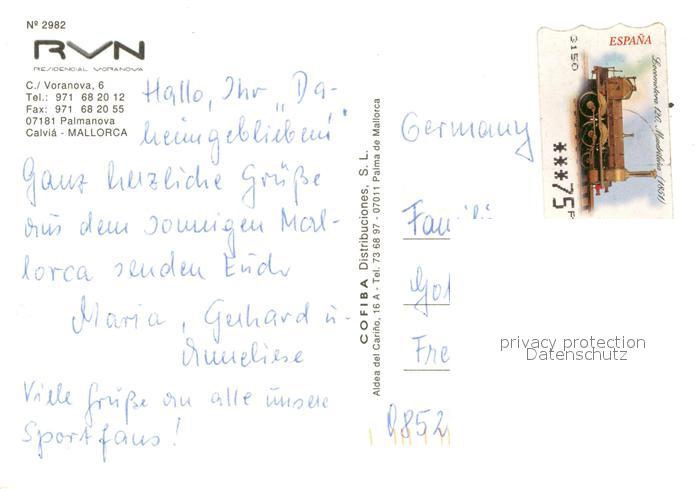 Nº 2982
RVN
RESIDENCIAL VORANOVA
C./ Voranova, 6
Tel.: 971 68 20 12
Fax: 971 68 20 55
07181 Palmanova
Calviá - MALLORCA
Hallo, Ihr „Da-
heimgebliebene"
Ganz herzliche Grüße
aus dem sonnigen Mal-
lorca senden Euch
Maria, Gerhard u.
Anneliese
Viele Grüße an alle unsere
Sportfans!
COFIBA Distribuciones, S. L.
Aldea del Cariño, 16 A - Tel. 73 68 97 - 07011 Palma de Mallorca
ESPAÑA
3150
***75 P
Germany
Fam
Fre
0852
privacy protection
Datenschutz